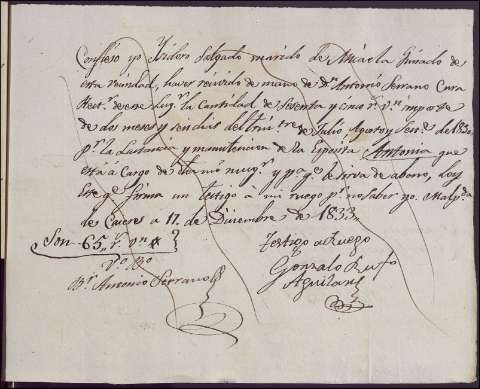 Confieso yo Ysidoro Salgado marido de Micaela Guisado de
esta vecindad, haver recivido de mano de Dn. Antonio Serrano Cura
Rect.r de este Lug.r la Cantidad de sesenta y cinco r.s v.n importe
de dos meses y seis dias del trim.tre de Julio, Agosto y
p.r la Lactancia y mantencion de la Esposita Antonia que
está á Cargo de mi mug.r y p.a q.e le sirva de abono, doy
este q.e firma un testigo a mi ruego p.r no saber yo. Malp.da
de Caceres a 17 de Diciembre de 1833
Son 65 r.s v.n
Testigo a Ruego
V.o B.o
Gonzalo Rufo
B.r Antonio Serrano
Aguilar